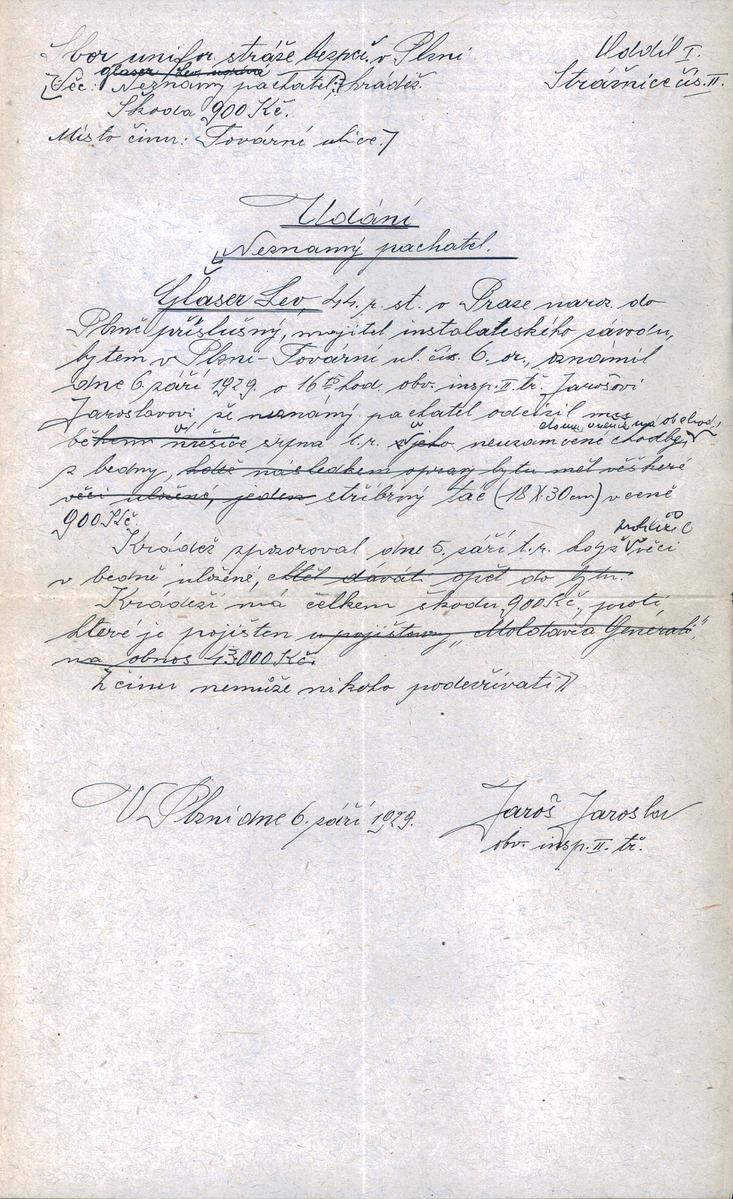 Sbor unifor. stráže bezpeč. v Plzni Oddíl I.
Glaser Lev, Strážnice čís. II.
Věc: Neznámý pachatel, krádež.
Škoda 900 Kč.
Místo činu: Tovární ulice.
Udání
Neznámý pachatel.
Glaser Lev, 44. r. st. v Praze naroz. do
Plzně příslušný, majitel instalateského závodu,
bytem v Plzni - Tovární ul. čís. 6. or., oznámil
dne 6. září 1929. o 16 hod. obv. insp. II. tř. Jarošovi
Jaroslavovi že neznámý pachatel odcizil
během měsíce srpna t. r. z jeho neuzamčené chodby,
z bedny, kdež následkem opravy bytu měl veškeré
věci uložené, jeden stříbrný tác (18 X 30 cm) v ceně
900 Kč.
prohlížel
Krádež zpozoroval dne 5. září t. r. když věci
v bedně uložené, chtěl dávati opět do bytu.
Krádeží má celkem škodu 900 Kč, proti
které je pojištěn u pojišťovny „Moldavia Generali“
na obnos 43000 Kč.
Z činu nemůže nikoho podezřívati
V Plzni dne 6. září 1929. Jaroš Jaroslav
obv. insp. II. tř.